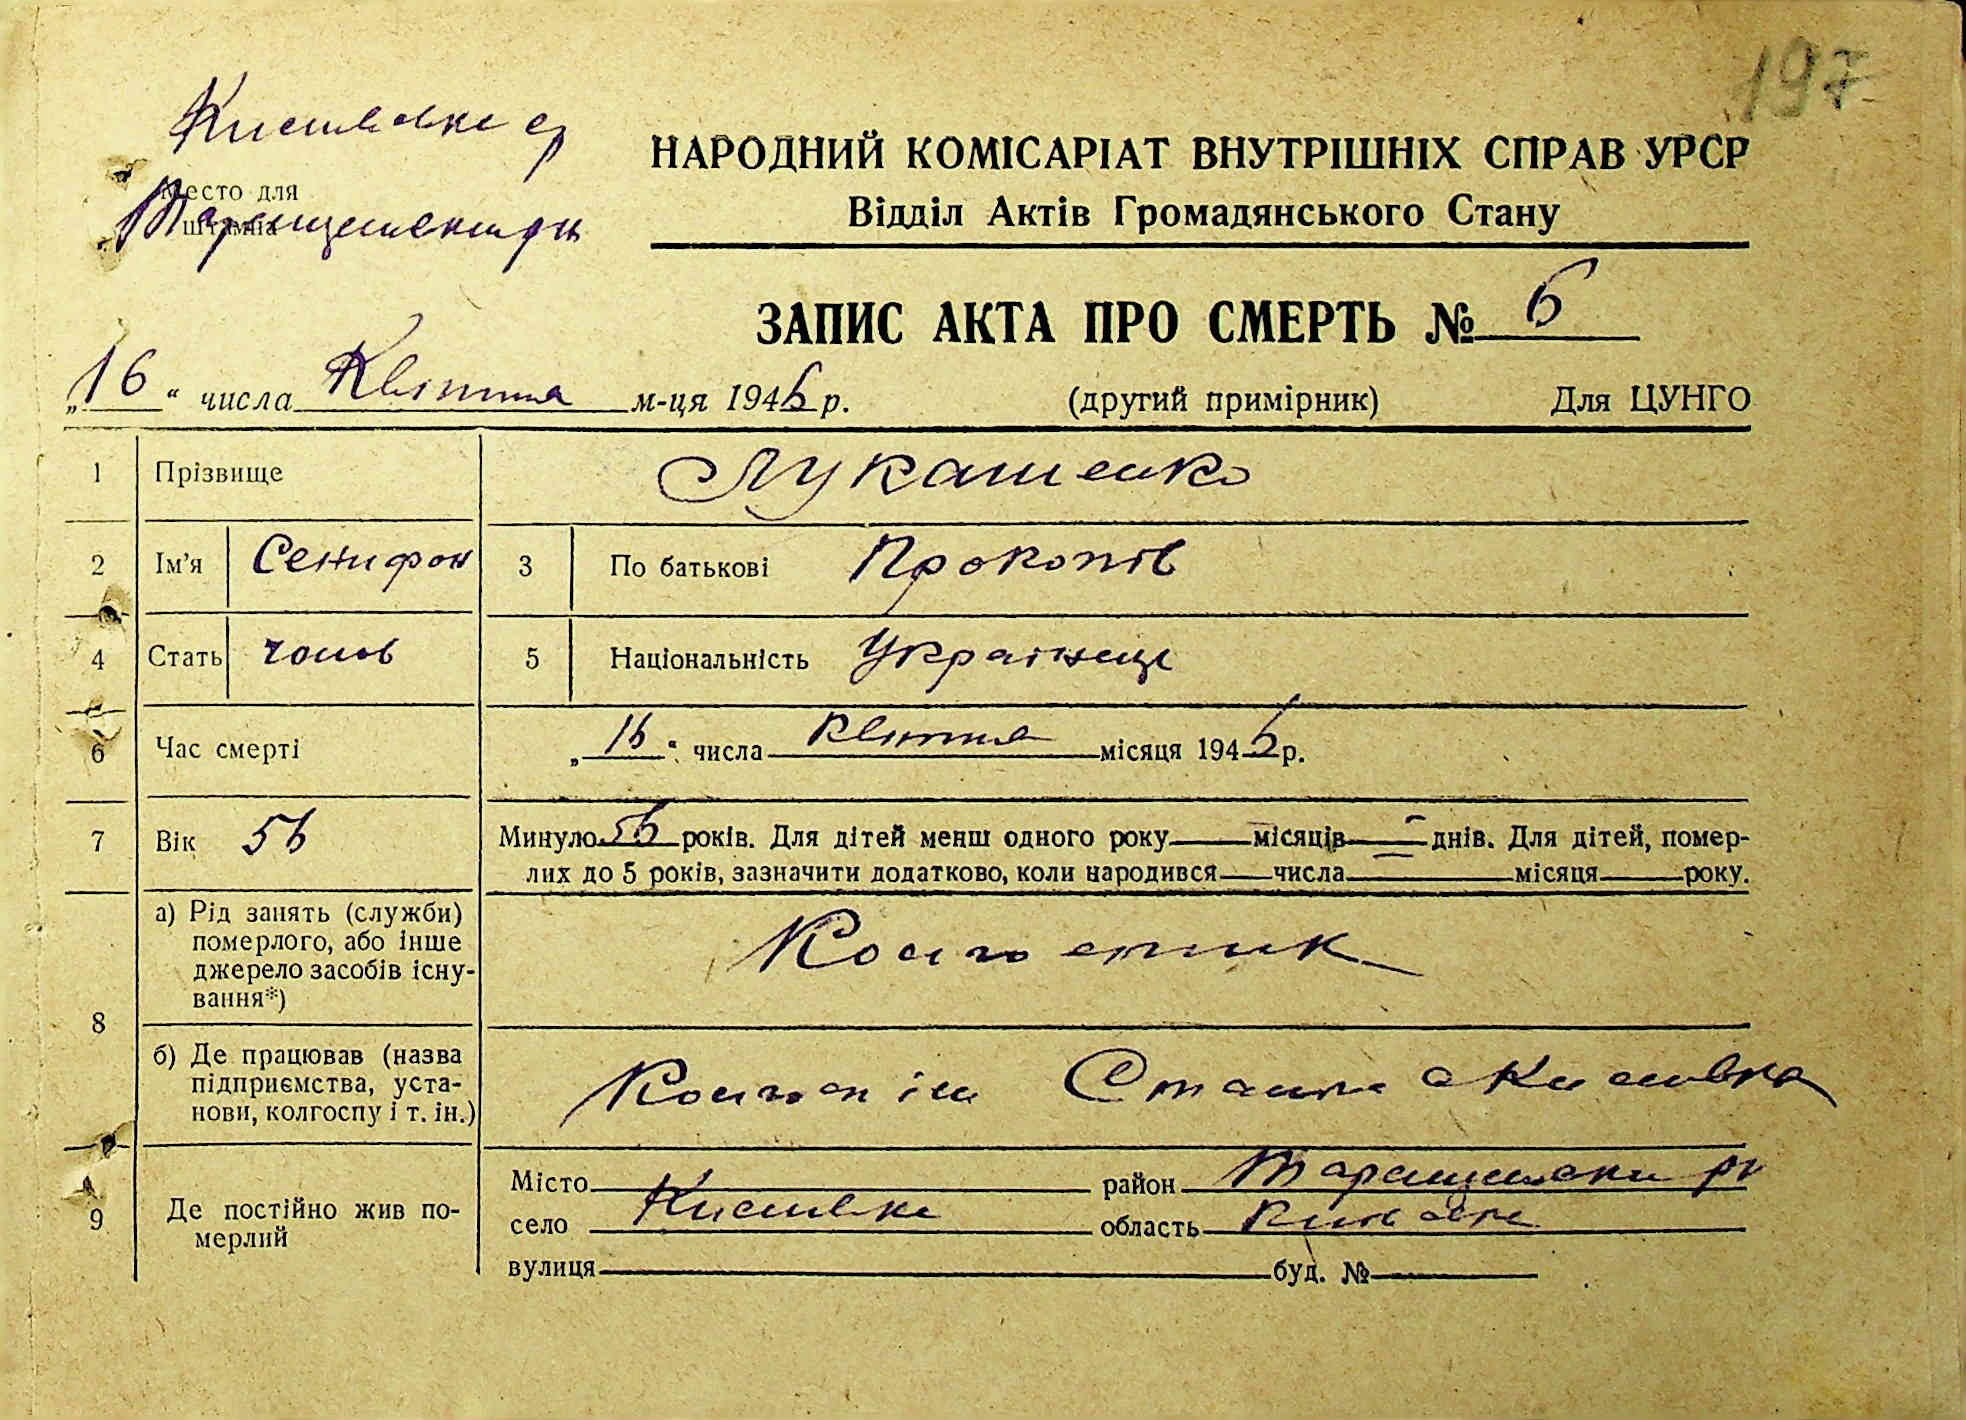 197
Кислівка ср
Место для
штампа
Таращанский рн
НАРОДНИЙ КОМІСАРІАТ ВНУТРІШНІХ СПРАВ УРСР
Відділ Актів Громадянського Стану
ЗАПИС АКТА ПРО СМЕРТЬ № 6
„16“ числа Квітня м-ця 1946 р. (другий примірник) Для ЦУНГО
1 Прізвище Лукашенко
2 Ім’я Сенифон 3 По батькові Прокопів
4 Стать чолов 5 Національність Українец
6 Час смерті „16“ числа квітня місяця 1946 р.
7 Вік 56 Минуло 56 років. Для дітей менш одного року — місяців — днів. Для дітей, помер-
лих до 5 років, зазначити додатково, коли народився — числа — місяця — року.
8 а) Рід занять (служби)
померлого, або інше
джерело засобів існу-
вання*)
Колгоспник
б) Де працював (назва
підприємства, уста-
нови, колгоспу і т. ін.)
Колгосп ім Сталіна с Кислівка
9 Де постійно жив по-
мерлий
Місто район Таращански рн
село Кислівка область Київська
вулиця буд. №